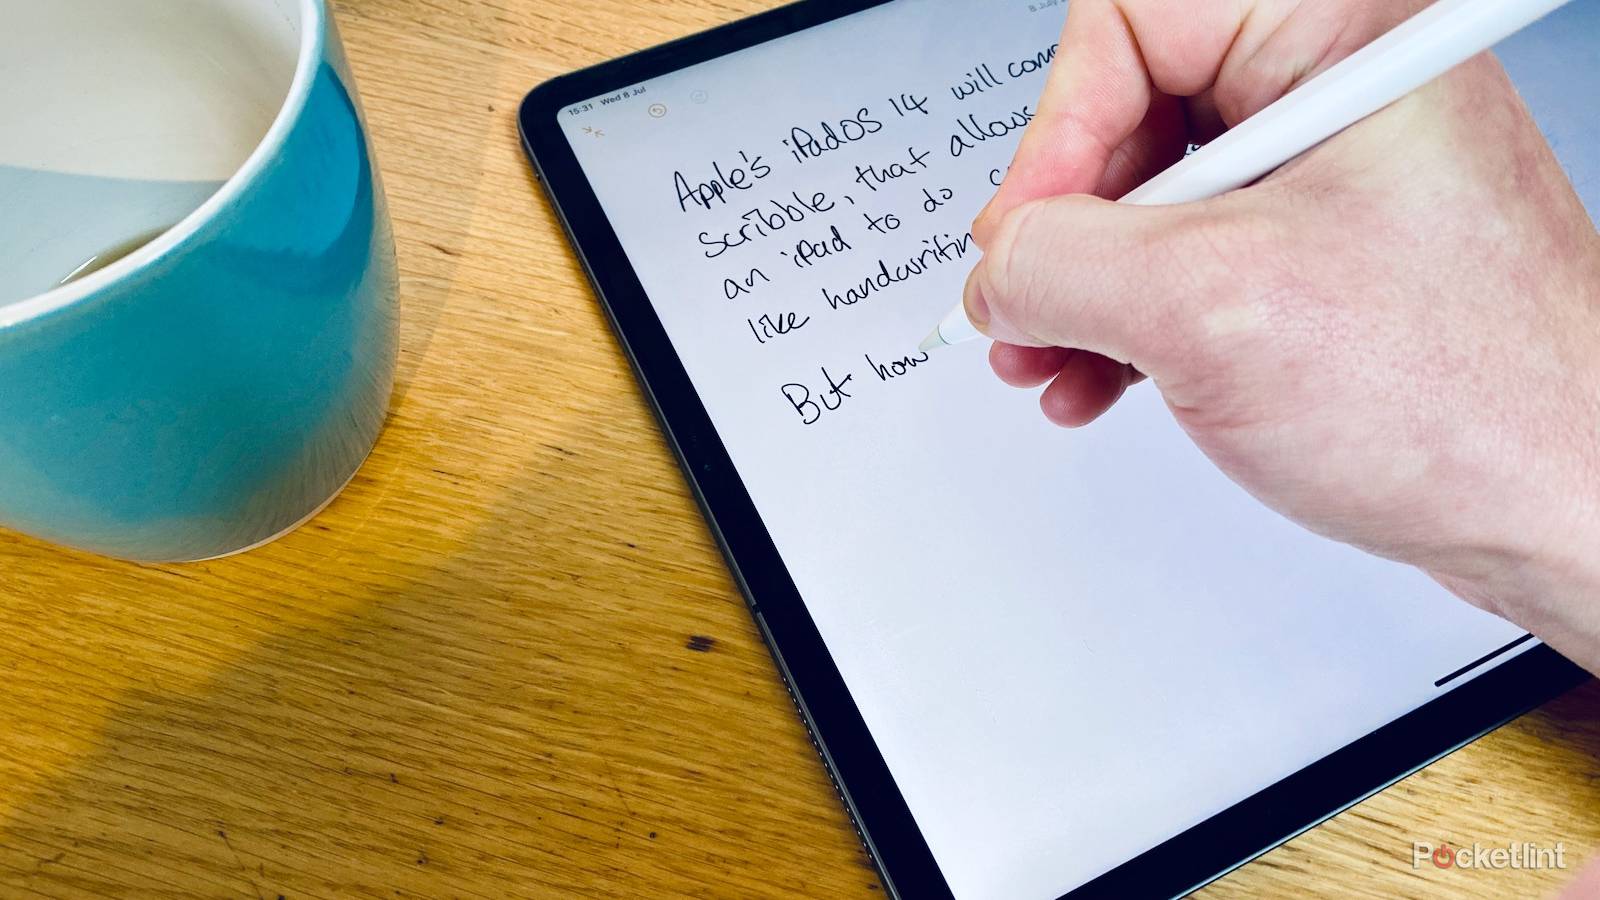 15:31 Wed 8 Jul
8 July
Apple's iPadOS 14 will
scribble, that allows
an iPad to do
like
But how
Pocketlint